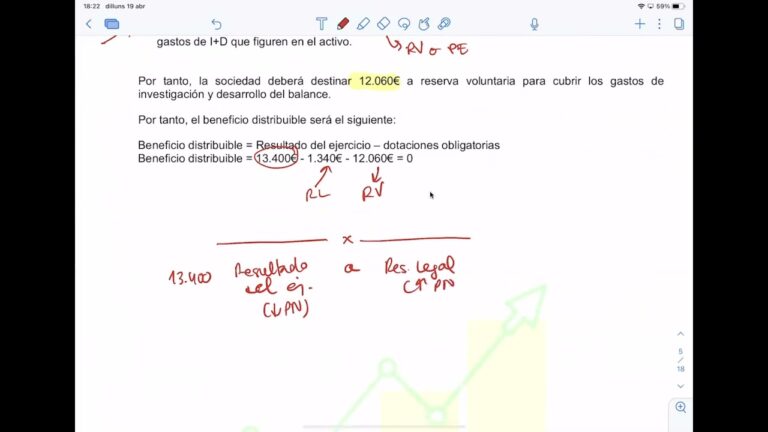 18:22 dilluns 19 abr
59%
gastos de I+D que figuren en el activo.
RV o PE
Por tanto, la sociedad deberá destinar 12.060€ a reserva voluntaria para cubrir los gastos de
investigación y desarrollo del balance.
Por tanto, el beneficio distribuible será el siguiente:
Beneficio distribuible = Resultado del ejercicio – dotaciones obligatorias
Beneficio distribuible = 13.400€ - 1.340€ - 12.060€ = 0
RL RV
x
13.400 Resultado a Res. Legal
del ej. (↑ PN
(↓ PN)
5
/
18